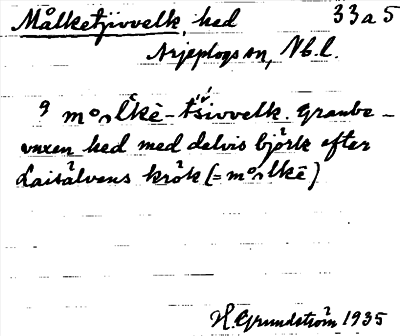 Målketjivvelk, hed 33a5
Arjeplogs sn, Nb.l.
9 mo̊lkē-tšivvelk. Granbe-
vuxen hed med delvis björk efter
Laisälvens krök (= mo̊lkē)
H. Grundström 1935